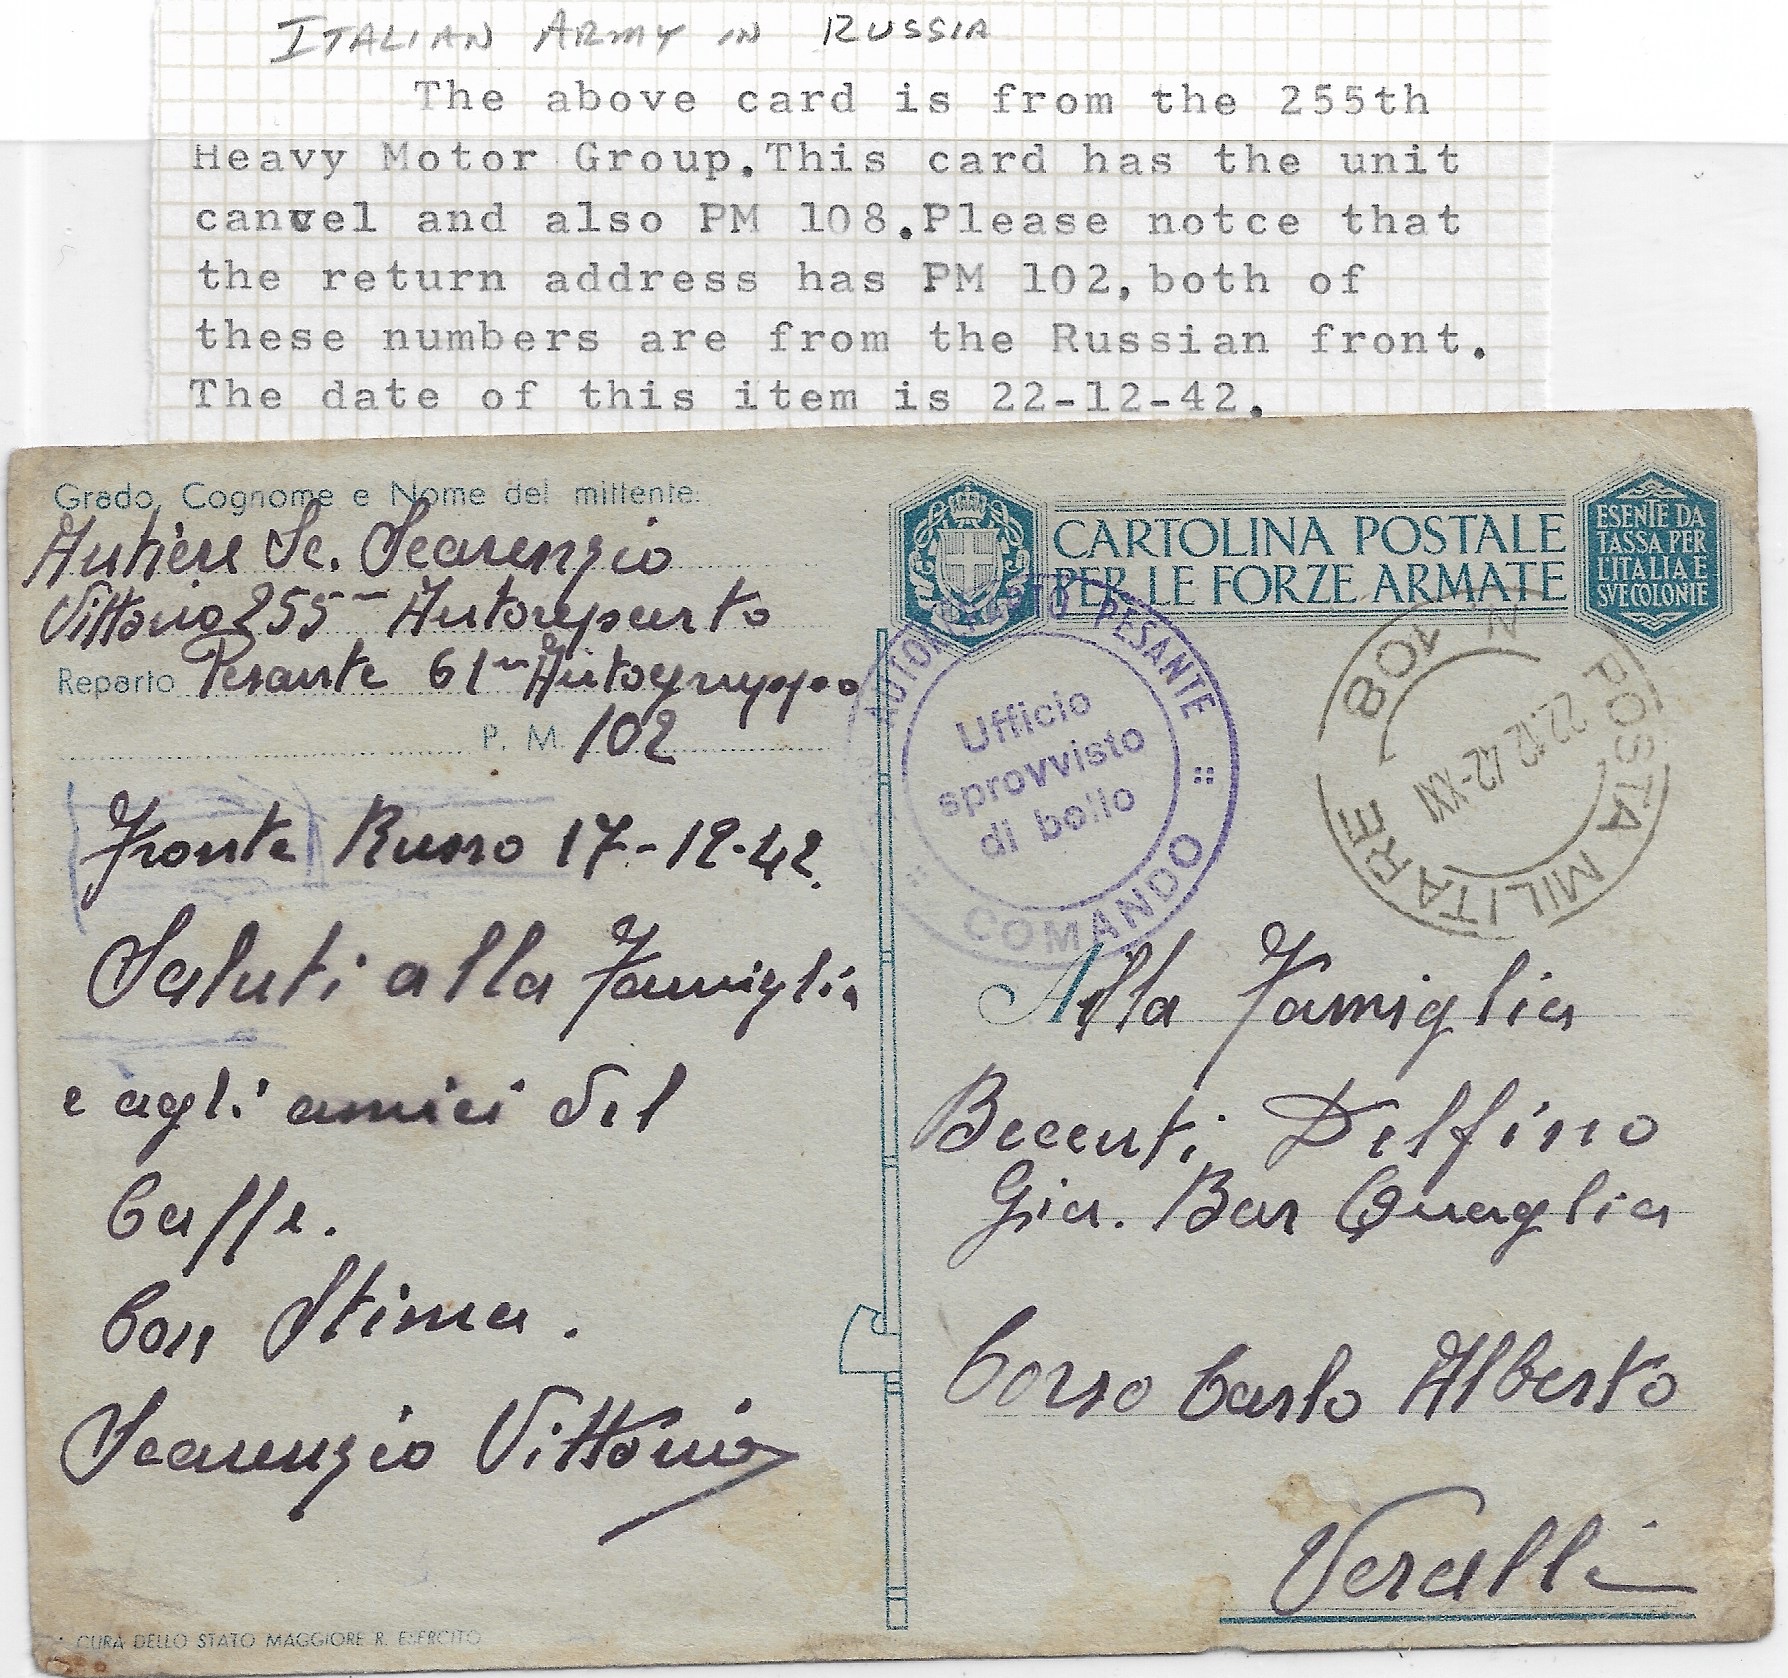 ITALIAN ARMY IN RUSSIA
The above card is from the 255th
Heavy Motor Group.This card has the unit
canvel and also PM 108.Please notce that
the return address has PM 102,both of
these numbers are from the Russian front.
The date of this item is 22-12-42.
Grado, Cognome e Nome del mittente:
Autiere Sc. Scarenzio
Vittorio 255 Autoreparto
Reparto Pesante 61 Autogruppo
P. M. 102
Fronte Russo 17-12-42.
Saluti alla Famiglia
e agli amici del
Caffe.
Con Stima.
Scarenzio Vittorio
CURA DELLO STATO MAGGIORE R. ESERCITO
CARTOLINA POSTALE
PER LE FORZE ARMATE
ESENTE DA
TASSA PER
L'ITALIA E
SUE COLONIE
AUTOREPARTO PESANTE
Ufficio
sprovvisto
di bollo
COMANDO
POSTA MILITARE
N 108
22.12.42-XXI
Alla Famiglia
Delfino
Gia. Bar Quaglia
Corso Carlo Alberto